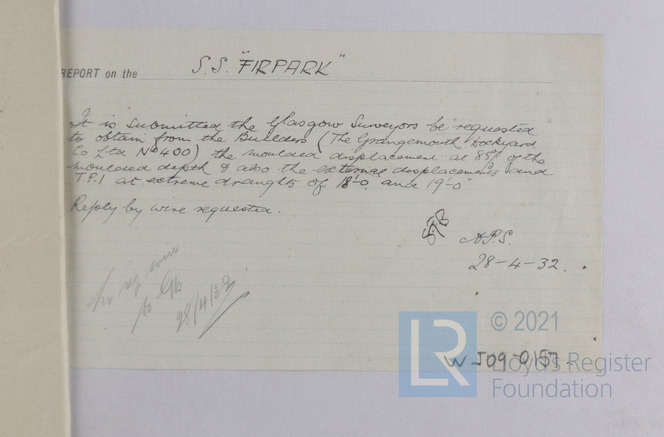 REPORT on the S.S. "FIRPARK"
It is submitted the Glasgow Surveyors be requested
to obtain from the Builders (The Grangemouth Dockyard
Co Ltd No 400) the moulded displacement at 85% of the
moulded depth & also the external displacements and
T.P.I at extreme draughts of 18'-0 and 19'-0"
Reply by wire requested.
A.P.S.
28-4-32.
to
28/4/32
© 2021
LR
Lloyd's Register
Foundation
W-J09-0157